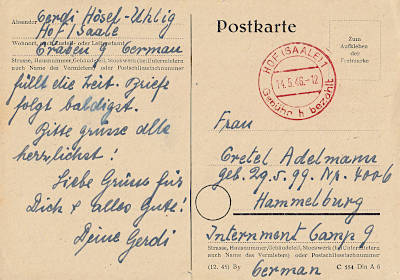 Absender: Gerdi Hösel-Uhlig
Hof/Saale
Wohnort, auch Zustell- oder Leitpostamt
Graben 9 German
Strasse, Hausnummer, Gebäudeteil, Stockwerk (bei Untermietern
auch Name des Vermieters) oder Postschliessfachnummer
füllt die Zeit. Briefe
folgt baldigst.
Bitte grüsse alle
herzlichst!
Liebe Grüsse für
Dich & alles Gute!
Deine Gerdi
Postkarte
Zum
Aufkleben
der
Freimarke
HOF (SAALE) 1
14.5.46.-12
Gebühr bezahlt
Frau
Gretel Adelmann
geb. 29.5.99. Nr. 4006
Hammelburg
Internment Camp 9
Strasse, Hausnummer, Gebäudeteil, Stockwerk (bei Untermietern
auch Name des Vermieters) oder Postschliessfachnummer
German
(12. 45) By
C 154 Din A 6